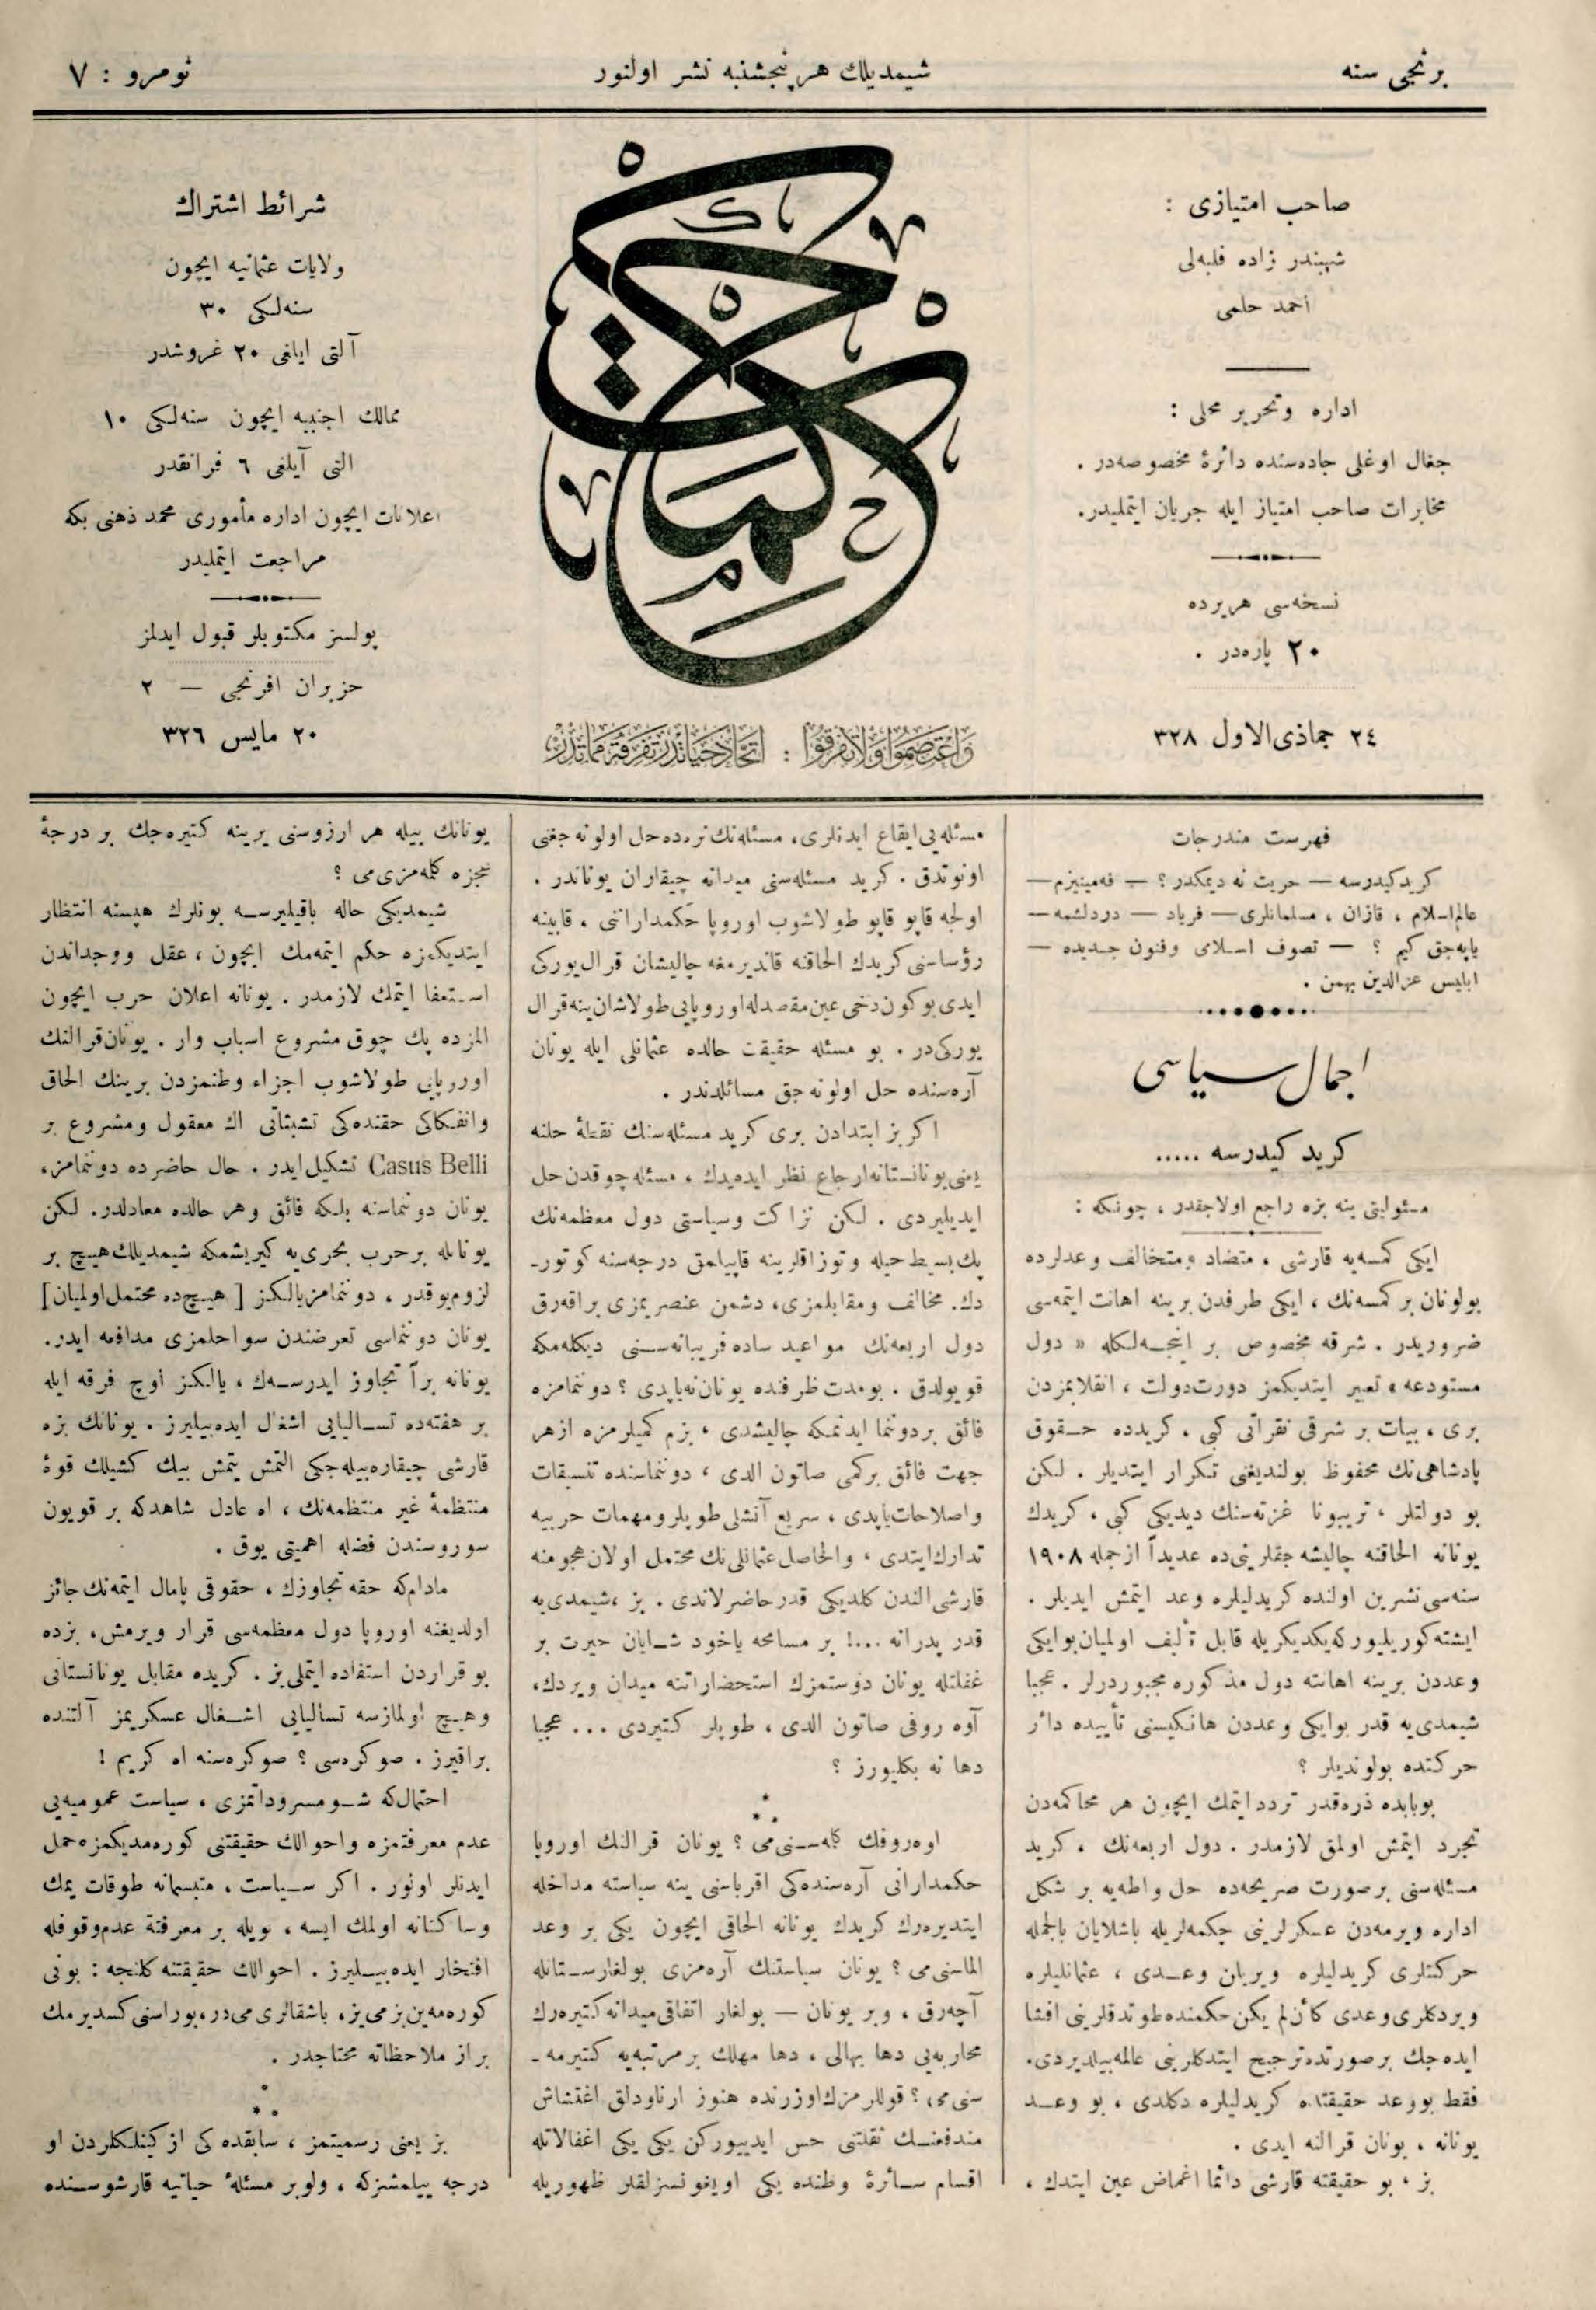 برنجی سنه
شیمدیلك هر پنجشنبه نشر اولنور
نومرو : ٧
صاحب امتیازی :
شهبندر زاده فلبه‌لی
احمد حلمی
اداره وتحریر محلی :
جغال اوغلی جاده‌سنده دائرۀ مخصوصه‌در .
مخابرات صاحب امتیاز ایله جریان ایتملیدر.
نسخه‌سی هریرده
٢٠ پاره‌در .
٢٤ جماذی‌الاول ٣٢٨
حكمت
واعتصموا ولاتفرقوا : اتحاد حیاتدر تفرقه مماتدر
شرائط اشتراك
ولایات عثمانیه ایچون
سنه‌لكی ٣٠
آلتی ایلغی ٢٠ غروشدر
ممالك اجنبیه ایچون سنه‌لكی ١٠
التی آیلغی ٦ فرانقدر
اعلانات ایچون اداره مأموری محمد ذهنی بكه
مراجعت ایتملیدر
پولسز مكتوبلر قبول ایدلمز
حزیران افرنجی — ٢
٢٠ مایس ٣٢٦
فهرست مندرجات
كرید كیدرسه — حریت نه دیمكدر ؟ — فه‌مینیزم —
عالم‌اسلام ، قازان ، مسلمانلری — فریاد — دردلشمه —
یاپه‌جق كیم ؟ — تصوف اسلامی وفنون جدیده —
ابلیس عزالدین بهمن .
اجمال سیاسی
كرید كیدرسه .....
مسئولیتی ینه بزه راجع اولاجقدر ، چونكه :
ایكی كمسه‌یه قارشی ، متضاد ومتخالف وعدلرده
بولونان بر كمسه‌نك ، ایكی طرفدن برینه اهانت ایتمه‌سی
ضروریدر . شرقه مخصوص بر اینجه‌لكله « دول
مستودعه » تعبیر ایتدیكمز دورت دولت ، انقلابمزدن
بری ، بیات بر شرقی نقراتی كبی ، كریدده حقوق
پادشاهی‌نك محفوظ بولندیغنی تكرار ایتدیلر . لكن
بو دولتلر ، تریبونا غزته‌سنك دیدیكی كبی ، كریدك
یونانه الحاقنه چالیشه جقلرینی‌ده عدیداً ازجمله ١٩٠٨
سنه‌سی تشرین اولنده كریدلیلره وعد ایتمش ایدیلر .
ایشته كوریلیوركه یكدیكریله قابل تألیف اولمیان بو ایكی
وعددن برینه اهانته دول مذكوره مجبوردرلر . عجبا
شیمدی‌یه قدر بو ایكی وعددن هانكیسنی تأییده دائر
حركتده بولوندیلر ؟
بوبابده ذره‌قدر تردد ایتمك ایچون هر محاكمه‌دن
تجرد ایتمش اولمق لازمدر . دول اربعه‌نك ، كرید
مسئله‌سنی بر صورت صریحه‌ده حل واطه‌یه بر شكل
اداره ویرمه‌دن عسكرلرینی چكمه‌لریله باشلایان بالجمله
حركتلری كریدلیلره ویریان وعدی ، عثمانلیلره
ویردكلری وعدی كأن لم یكن حكمنده طوتدقلرینی افشا
ایده‌جك بر صورتده ترجیح ایتدكلرینی عالمه بیلدیردی.
فقط بو وعد حقیقتده كریدلیلره دكلدی ، بو وعد
یونانه ، یونان قرالنه ایدی .
بز ، بو حقیقته قارشی دائما اغماض عین ایتدك ،
مسئله‌یی ایقاع ایدنلری، مسئله‌نك نرده حل اولونه جغنی
اونوتدق . كرید مسئله‌سنی میدانه چیقاران یوناندر .
اولجه قاپو قاپو طولاشوب اوروپا حكمدارانی ، قابینه
رؤساسنی كریدك الحاقنه قاندیرمغه چالیشان قرال یوركی
ایدی بوكون دخی عین مقصدله اوروپایی طولاشان ینه قرال
یوركی‌در . بو مسئله حقیقت حالده عثمانلی ایله یونان
آره‌سنده حل اولونه جق مسائلدندر .
اكر بز ابتدادن بری كرید مسئله‌سنك نقطۀ حلنه
یعنی یونانستانه ارجاع نظر ایده‌یدك ، مسئله چوقدن حل
ایدیلیردی . لكن نزاكت وسیاستی دول معظمه‌نك
پك بسیط حیله وتوزاقلرینه قاپیلمق درجه‌سنه كوتور-
دك. مخالف ومقابلمزی، دشمن عنصریمزی براقه‌رق
دول اربعه‌نك مواعید ساده فریبانه‌سنی دیكله‌مكه
قویولدق . بومدت ظرفنده یونان نه یاپدی ؟ دوننمامزه
فائق بر دوننما ایدنمكه چالیشدی ، بزم كمیلرمزه ازهر
جهت فائق بر كمی صاتون الدی ، دوننماسنده تنسیقات
واصلاحات یاپدی ، سریع آتشلی طوپلر ومهمات حربیه
تدارك ایتدی ، والحاصل عثمانلی‌نك محتمل اولان هجومنه
قارشی الندن كلدیكی قدر حاضرلاندی . بز ، شیمدی‌یه
قدر پدرانه ...! بر مسامحه یاخود شایان حیرت بر
غفلتله یونان دوستمزك استحضاراتنه میدان ویردك،
آوه روفی صاتون الدی ، طوپلر كتیردی ... عجبا
دها نه بكلیورز ؟
اوه‌روفك كله‌سنی‌می ؟ یونان قرالنك اوروپا
حكمدارانی آره‌سنده‌كی اقرباسنی ینه سیاسته مداخله
ایتدیره‌رك كریدك یونانه الحاقی ایچون یكی بر وعد
الماسنی‌می ؟ یونان سیاستنك آره‌مزی بولغارستانله
آچه‌رق ، وبر یونان — بولغار اتفاقی میدانه كتیره‌رك
محاربه‌یی دها بهالی ، دها مهلك بر مرتبه‌یه كتیرمه -
سنی‌می ؟ قوللرمزك اوزرنده هنوز ارناودلق اغتشاش
مندفعنك ثقلتنی حس ایدییوركن یكی یكی اغفالاتله
اقسام سائرۀ وطنده یكی اویغونسزلقلر ظهوریله
یونانك بیله هر ارزوسنی یرینه كتیره‌جك بر درجۀ
عجزه كله‌مزی‌می ؟
شیمدیكی حاله باقیلیرسه بونلرك هپسنه انتظار
ایتدیكمزه حكم ایتمه‌مك ایچون ، عقل ووجداندن
استعفا ایتمك لازمدر . یونانه اعلان حرب ایچون
المزده پك چوق مشروع اسباب وار . یونان قرالنك
اوروپایی طولاشوب اجزاء وطنمزدن برینك الحاق
وانفكاكی حقنده‌كی تشبثاتی اك معقول ومشروع بر
Casus Belli تشكیل ایدر . حال حاضرده دوننمامز،
یونان دوننماسنه بلكه فائق وهر حالده معادلدر. لكن
یونانله بر حرب بحری‌یه كیریشمكه شیمدیلك هیچ بر
لزوم یوقدر ، دوننمامز یالكز [ هیچ‌ده محتمل اولمیان ]
یونان دوننماسی تعرضندن سواحلمزی مدافعه ایدر.
یونانه براً تجاوز ایدرسه‌ك ، یالكز اوچ فرقه ایله
بر هفته‌ده تسالیایی اشغال ایده‌بیلیرز . یونانك بزه
قارشی چیقاره‌بیله‌جكی التمش یتمش بیك كشیلك قوۀ
منتظمۀ غیر منتظمه‌نك ، اه عادل شاهدكه بر قویون
سوروسندن فضله اهمیتی یوق .
مادام‌كه حقه تجاوزك ، حقوقی پامال ایتمه‌نك جائز
اولدیغنه اوروپا دول معظمه‌سی قرار ویرمش، بزده
بو قراردن استفاده ایتملی‌یز . كریده مقابل یونانستانی
وهیچ اولمازسه تسالیایی اشغال عسكریمز آلتنده
براقیرز . صوكره‌سی ؟ صوكره‌سنه اه كریم !
احتمال‌كه شو مسروداتمزی ، سیاست عمومیه‌یی
عدم معرفتمزه واحوالك حقیقتنی كوره‌مدیكمزه حمل
ایدنلر اونور . اكر سیاست ، متبسمانه طوقات یمك
وساكتانه اولمك ایسه ، بویله بر معرفتة عدم وقوفله
افتخار ایده‌بیلیرز . احوالك حقیقتنه كلنجه : بونی
كوره‌مه‌ین بز می‌یز، باشقالری می‌در، بوراسنی كسدیرمك
براز ملاحظاته محتاجدر .
بز یعنی رسمیتمز ، سابقده كی ازكینلكلردن او
درجه ییلمشزكه ، ولو بر مسئلۀ حیاتیه قارشوسنده